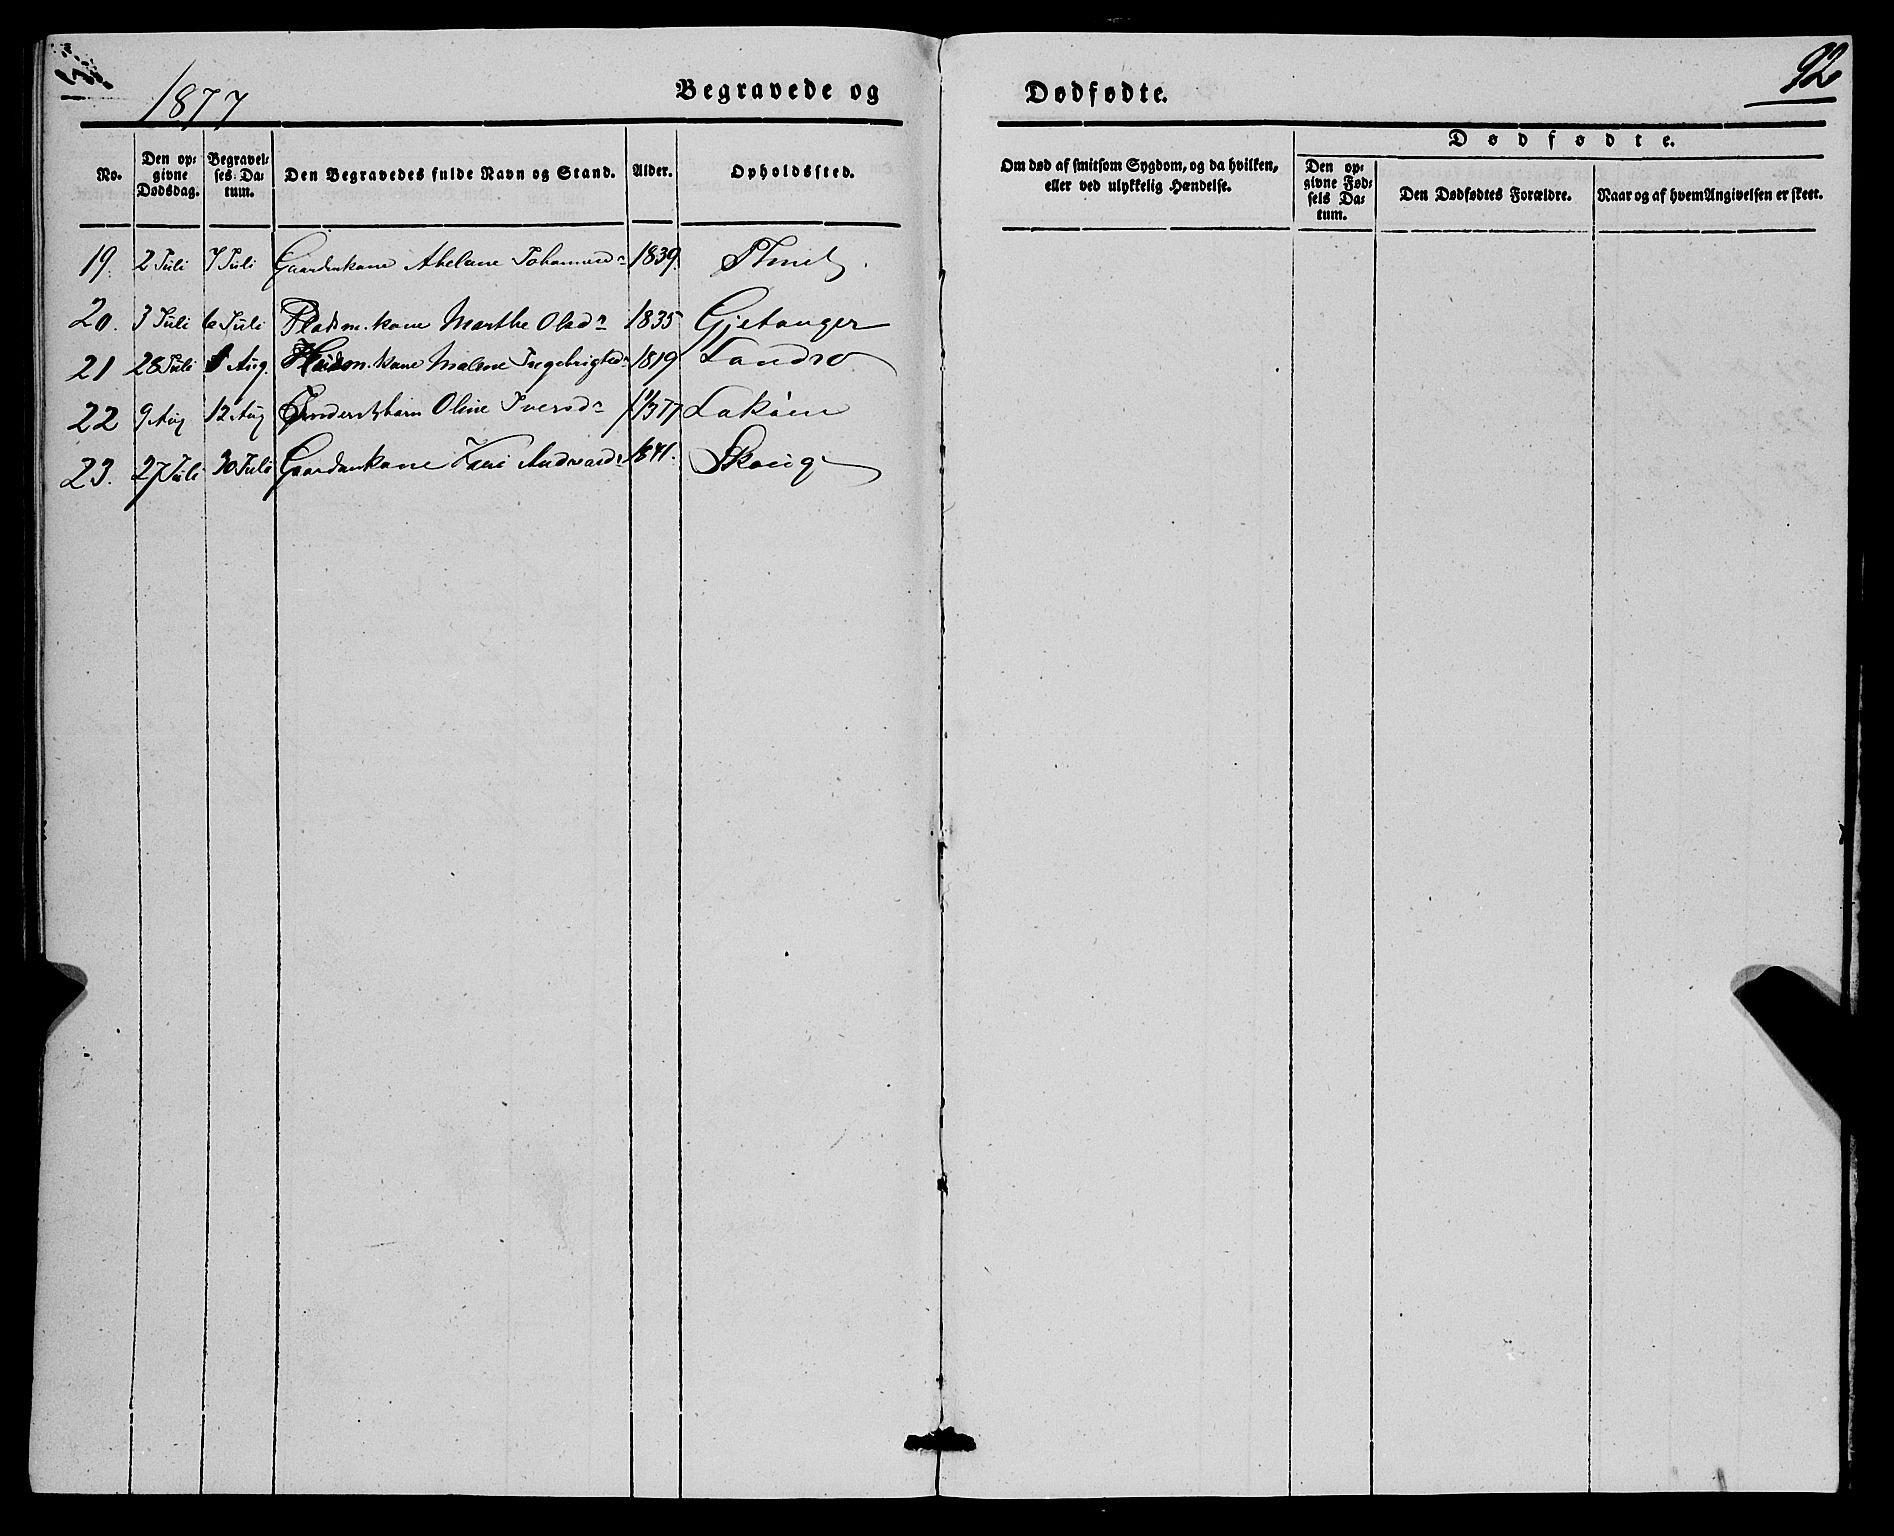 1877
Begravede og
Dødfødte.
92
No.
Den op-
givne
Dødsdag.
Begravel-
ses-Da-
tum.
Den Begravedes fulde Navn og Stand.
Alder.
Opholdssted.
Om død af smitsom Sygdom, og da hvilken,
eller ved ulykkelig Hændelse.
Dødfødte.
Den op-
givne Fød-
sels Da-
tum.
Den Dødfødtes Forældre.
Naar og af hvem Angivelsen er skeet.
19. 2 Juli 7 Juli Gaardmkone Abelone Johannesd. 1839.
20. 3 Juli 6 Juli Pladsm.kone Marthe Olsd. 1835 Gjetanger
21 28 Juli Aug. Huusm.kone Malene Ingebrigtsd. 1819 Landrø
22 9 Aug 12 Aug Oline Iversd. 77 Lokøen
23. 27 Juli 30 Juli Gaardmkone Kari Andreasd. 1841. Skoug